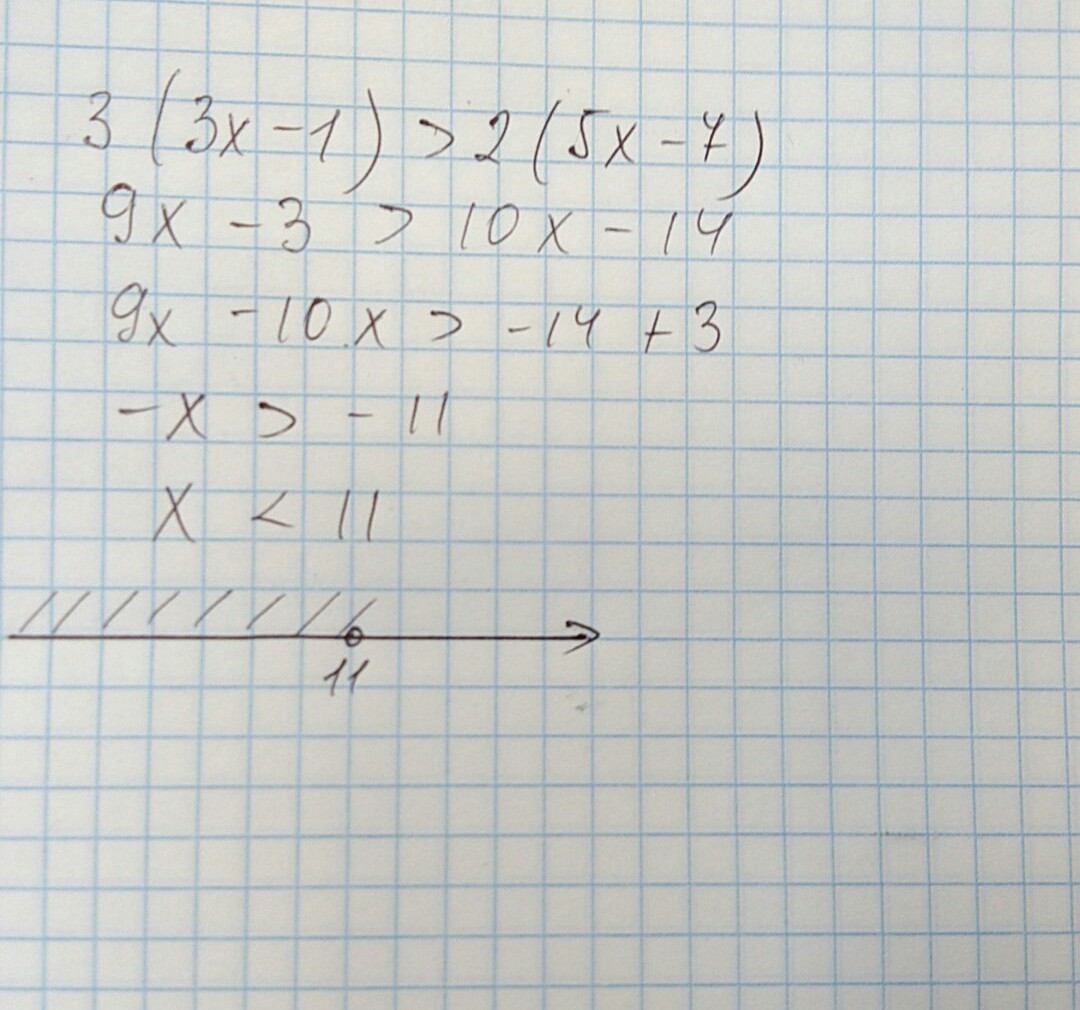 3(3x-1)>2(5x-7)
9x-3>10x-14
9x-10x>-14+3
-x>-11
x<11
11